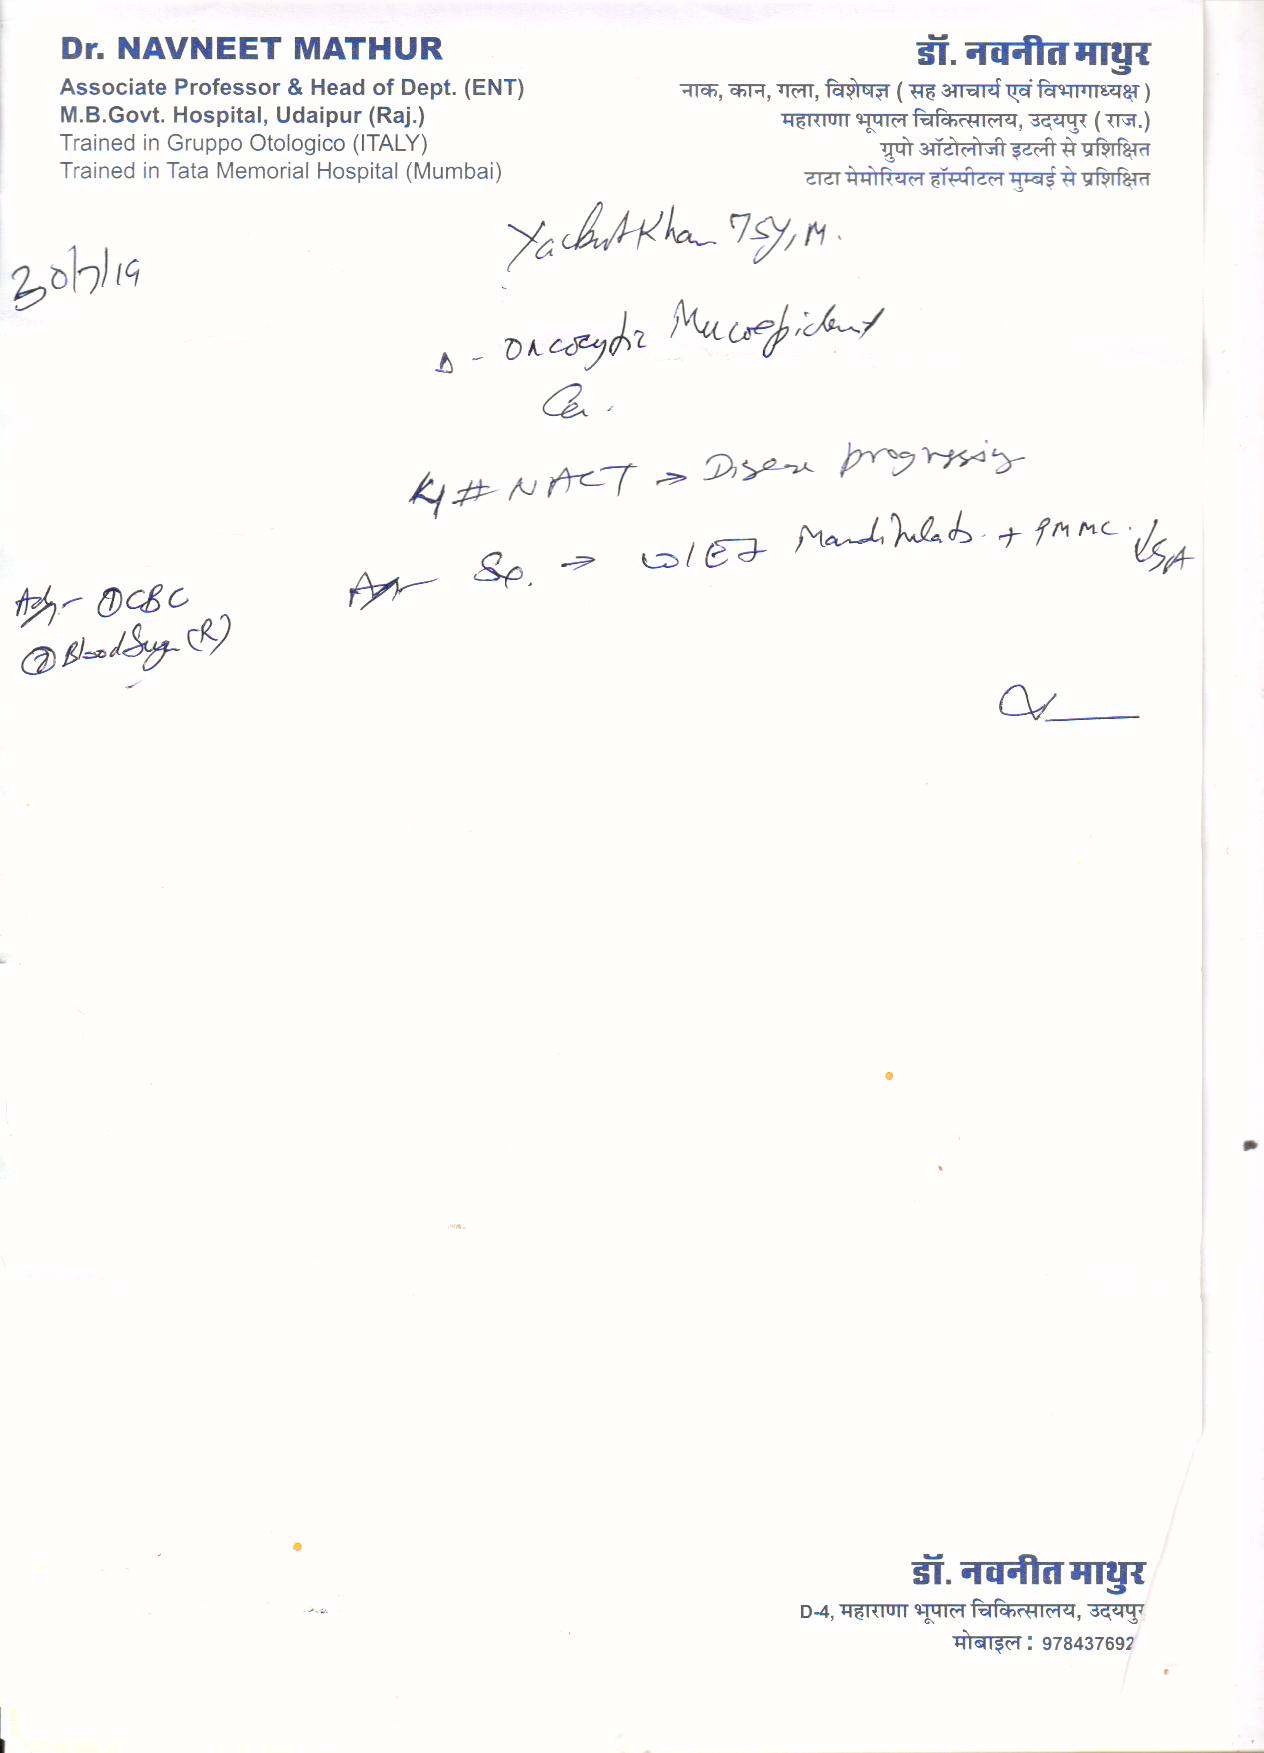 Dr. NAVNEET MATHUR
Associate Professor & Head of Dept. (ENT)
M.B.Govt. Hospital, Udaipur (Raj.)
Trained in Gruppo Otologico (ITALY)
Trained in Tata Memorial Hospital (Mumbai)
डॉ. नवनीत माथुर
नाक, कान, गला, विशेषज्ञ ( सह आचार्य एवं विभागाध्यक्ष )
महाराणा भूपाल चिकित्सालय, उदयपुर ( राज.)
ग्रुपो ऑटोलोजी इटली से प्रशिक्षित
टाटा मेमोरियल हॉस्पीटल मुम्बई से प्रशिक्षित
Khan 75y, M.
30/7/19
Δ - Oncocytic Mucoepident
Ca.
# NACT → Disease progressing
→ W/E + PMMC.
Adv- ① CBC
② Blood Sugar (R)
डॉ. नवनीत माथुर
D-4, महाराणा भूपाल चिकित्सालय, उदयपुर
मोबाइल : 978437692